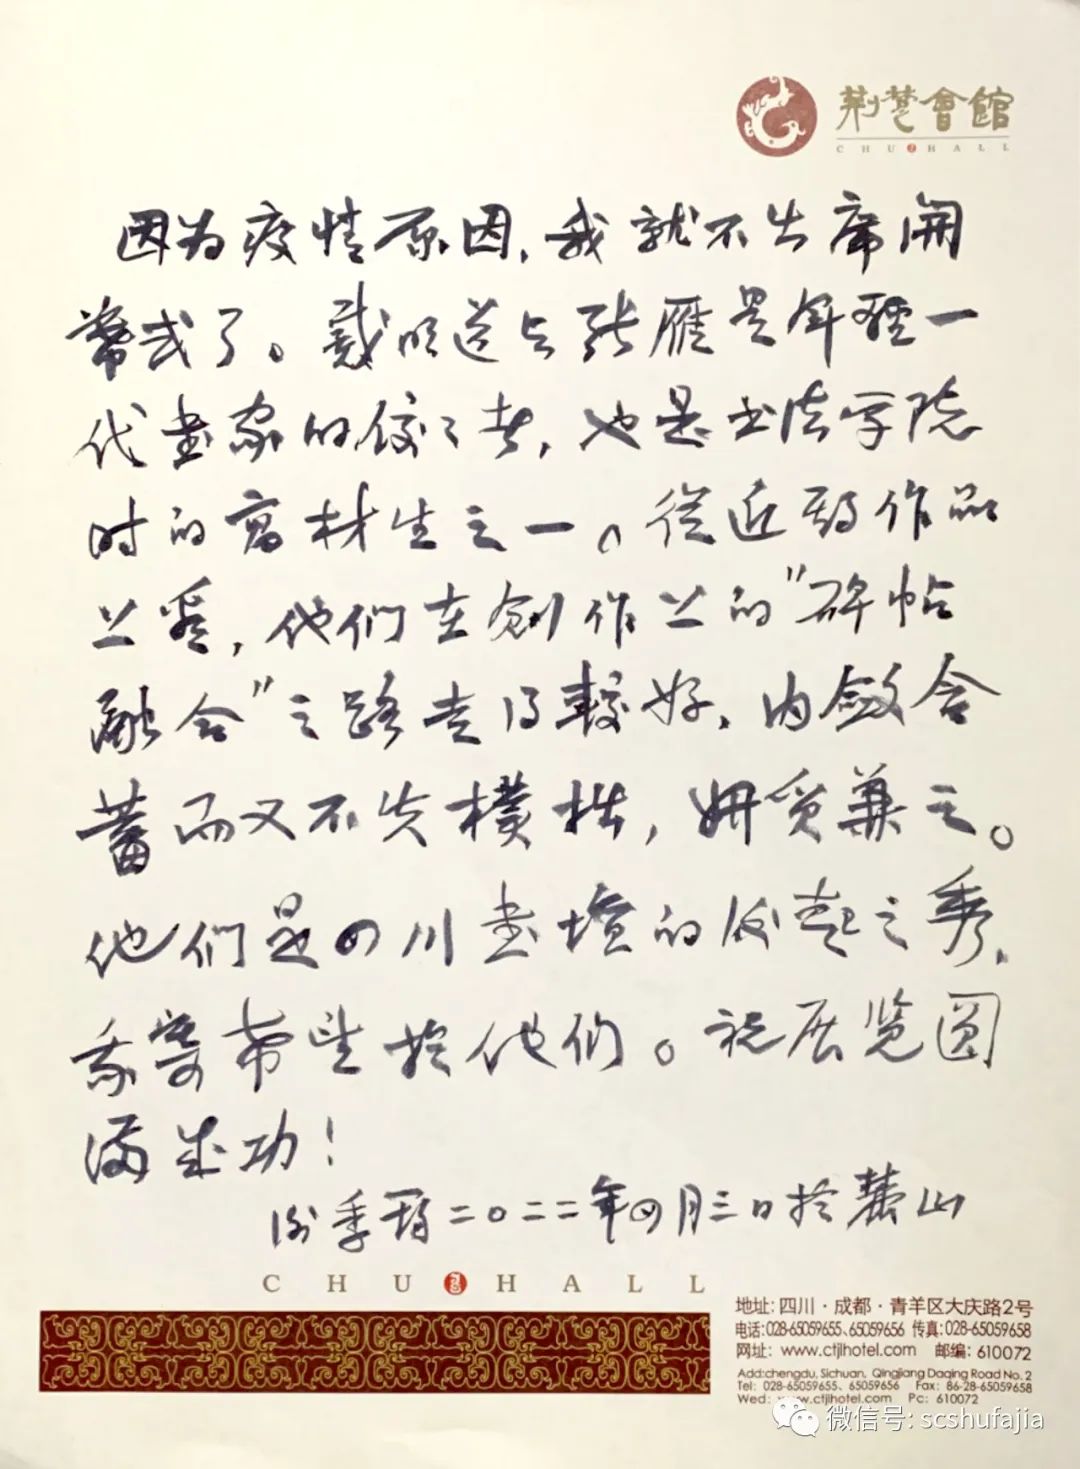 荆楚會館
CHU HALL
因为疫情原因，我就不出席開
幕式了。戴明道与张雁是年轻一
代書家的佼佼者，也是书法学院
时的高材生之一。從近期作品
上看，他们在創作上的"碑帖
融合"之路走得較好，内斂含
蓄而又不失樸拙，妍質兼之。
他们是四川書壇的後起之秀，
我寄希望於他们。祝展览圆
满成功！
谢季筠二〇二二年四月三日於麓山
CHU HALL
地址：四川·成都·青羊区大庆路2号
电话：028-65059655、65059656 传真：028-65059658
网址：www.ctjlhotel.com 邮编：610072
Add:chengdu, Sichuan, Qingjiang Daqing Road No. 2
Tel: 028-65059655、65059656 Fax: 86-28-65059658
Wed: www.ctjlhotel.com Pc: 610072
微信号: scshufajia